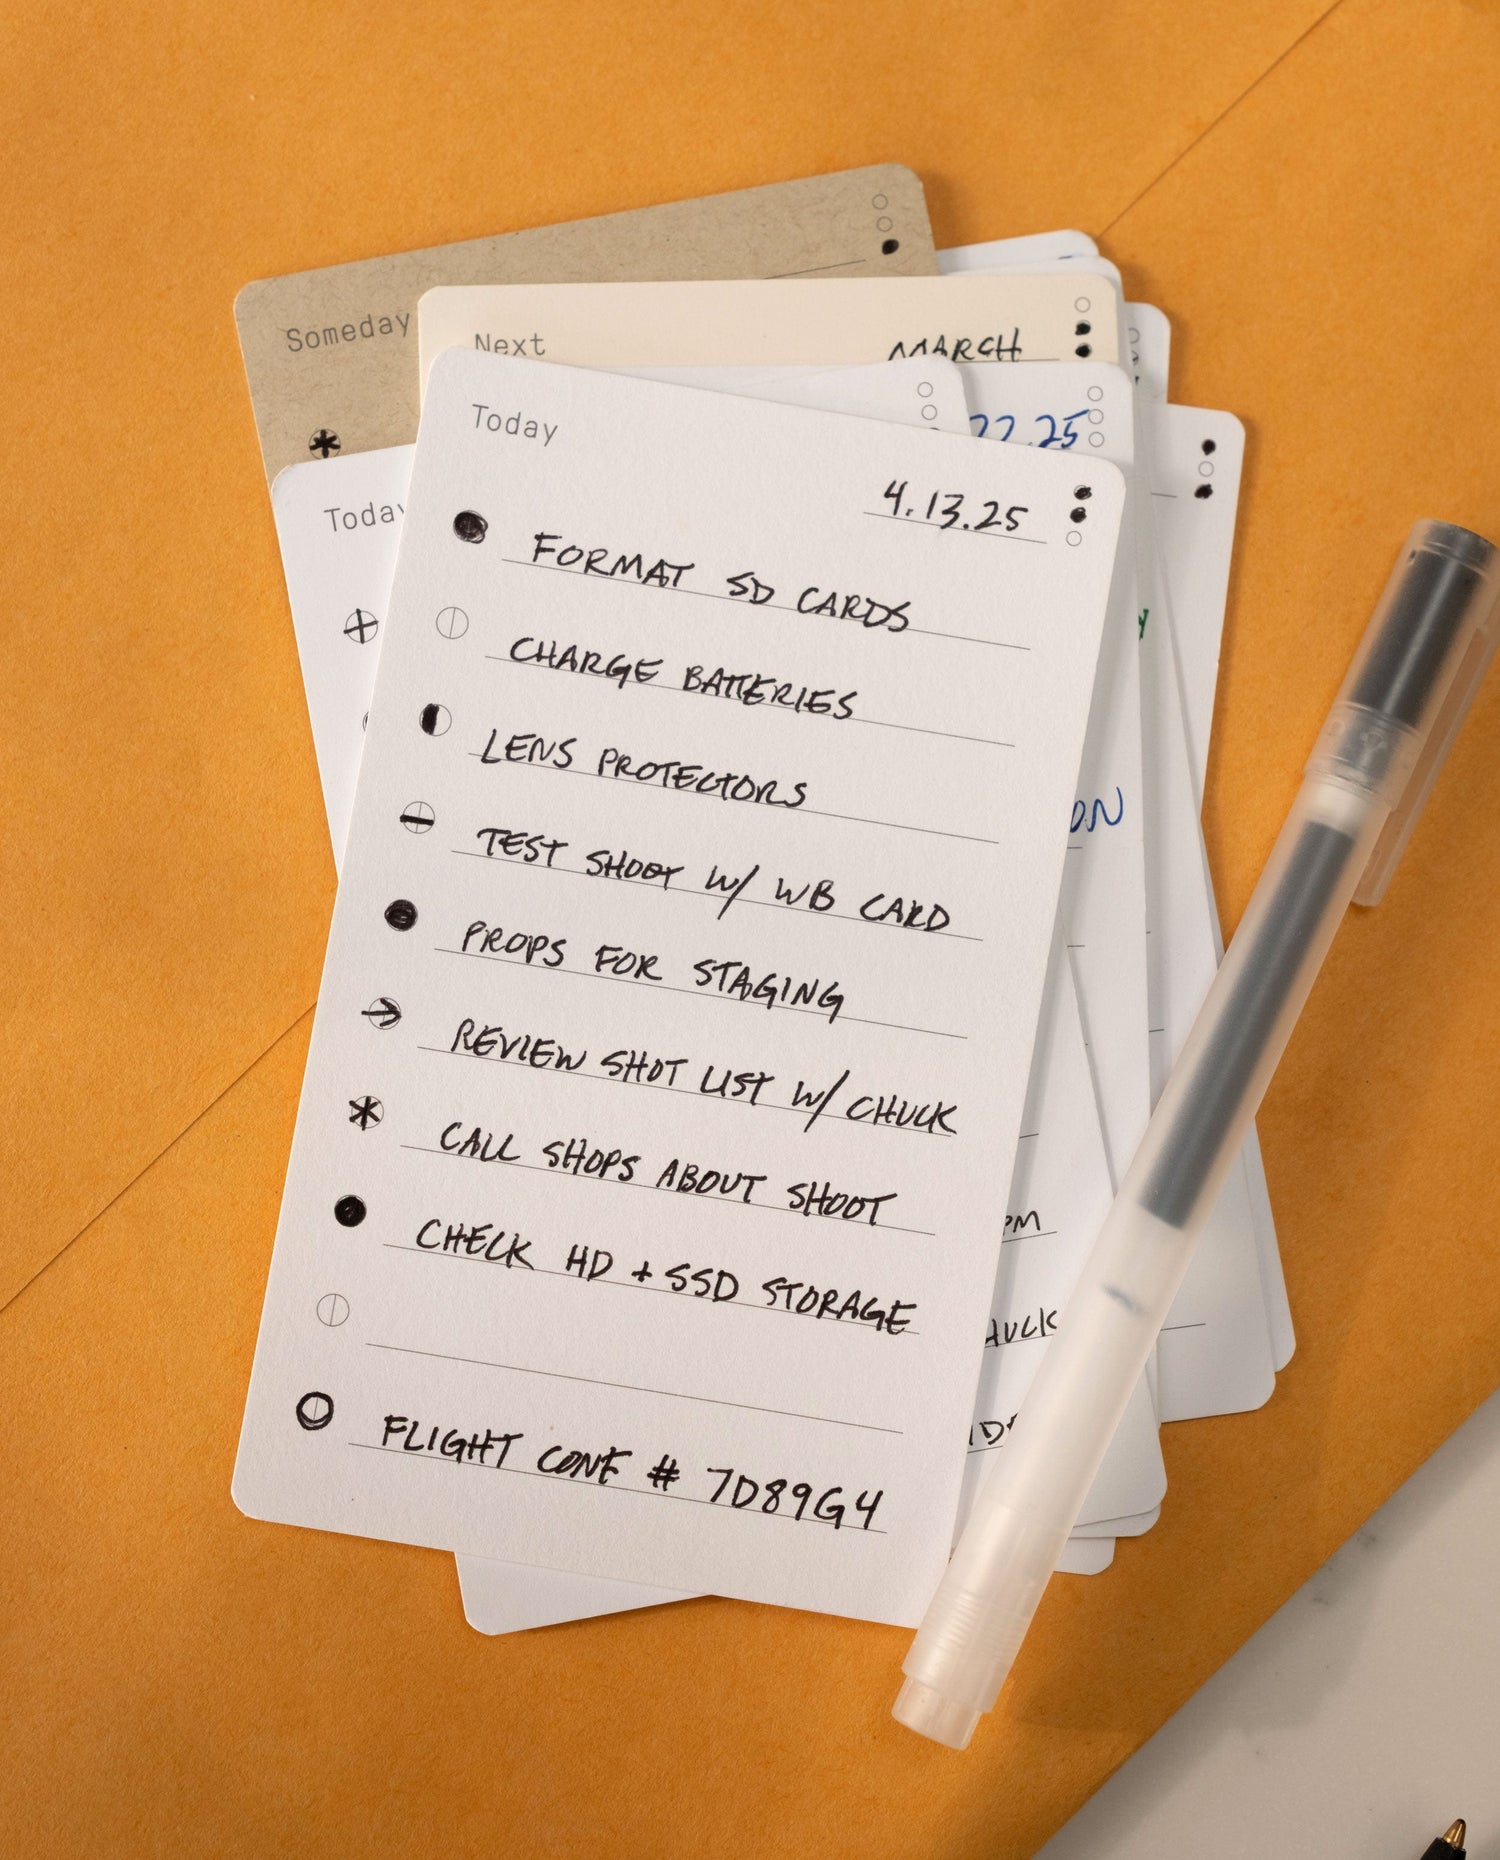 Someday
Next
MARCH
Today
22.25
Today
4.13.25
FORMAT SD CARDS
CHARGE BATTERIES
LENS PROTECTORS
TEST SHOOT W/ WB CARD
PROPS FOR STAGING
REVIEW SHOT LIST W/ CHUCK
CALL SHOPS ABOUT SHOOT
CHECK HD + SSD STORAGE
FLIGHT CONF # 7D89G4